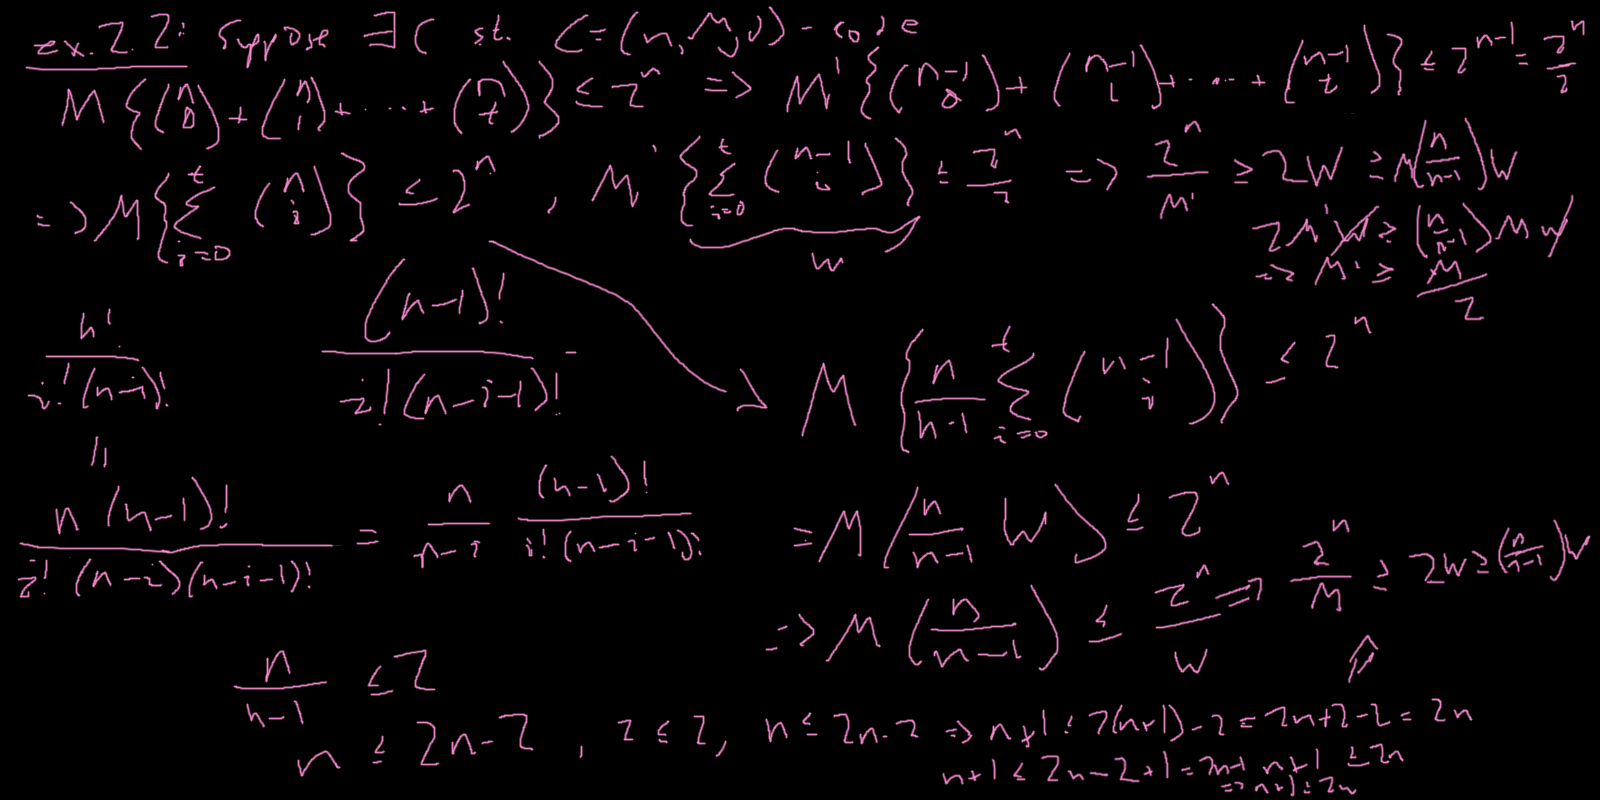 ex. 2.2: Suppose ∃ C st. C = (n, M, d) - code
M {(n 0) + (n 1) + ... + (n t)} ≤ 2^n => M' {(n-1 0) + (n-1 1) + ... + (n-1 t)} ≤ 2^{n-1} = 2^n/2
=> M {∑_{i=0}^{t} (n i)} ≤ 2^n , M' {∑_{i=0}^{t} (n-1 i)} ≤ 2^n/2 => 2^n/M' ≥ 2W ≥ M(n/n-1)W
W
2M'W ≥ (n/n-1) M W
=> M' ≥ M/2
n!/i!(n-i)! (n-1)!/i!(n-i-1)! - M {n/n-1 ∑_{i=0}^{t} (n-1 i)} ≤ 2^n
=
n(n-1)!/i!(n-i)(n-i-1)! = n/n-i (n-1)!/i!(n-i-1)! = M (n/n-1 W) ≤ 2^n
=> M (n/n-1) ≤ 2^n/W => 2^n/M ≥ 2W ≥ (n/n-1)W
⇑
n/n-1 ≤ 2
n ≤ 2n-2 , 2 ≤ 2, n ≤ 2n-2 => n+1 ≤ 2(n+1)-2 = 2n+2-2 = 2n
n+1 ≤ 2n-2+1 = 2n-1 n+1 ≤ 2n
=> n+1 ≤ 2n